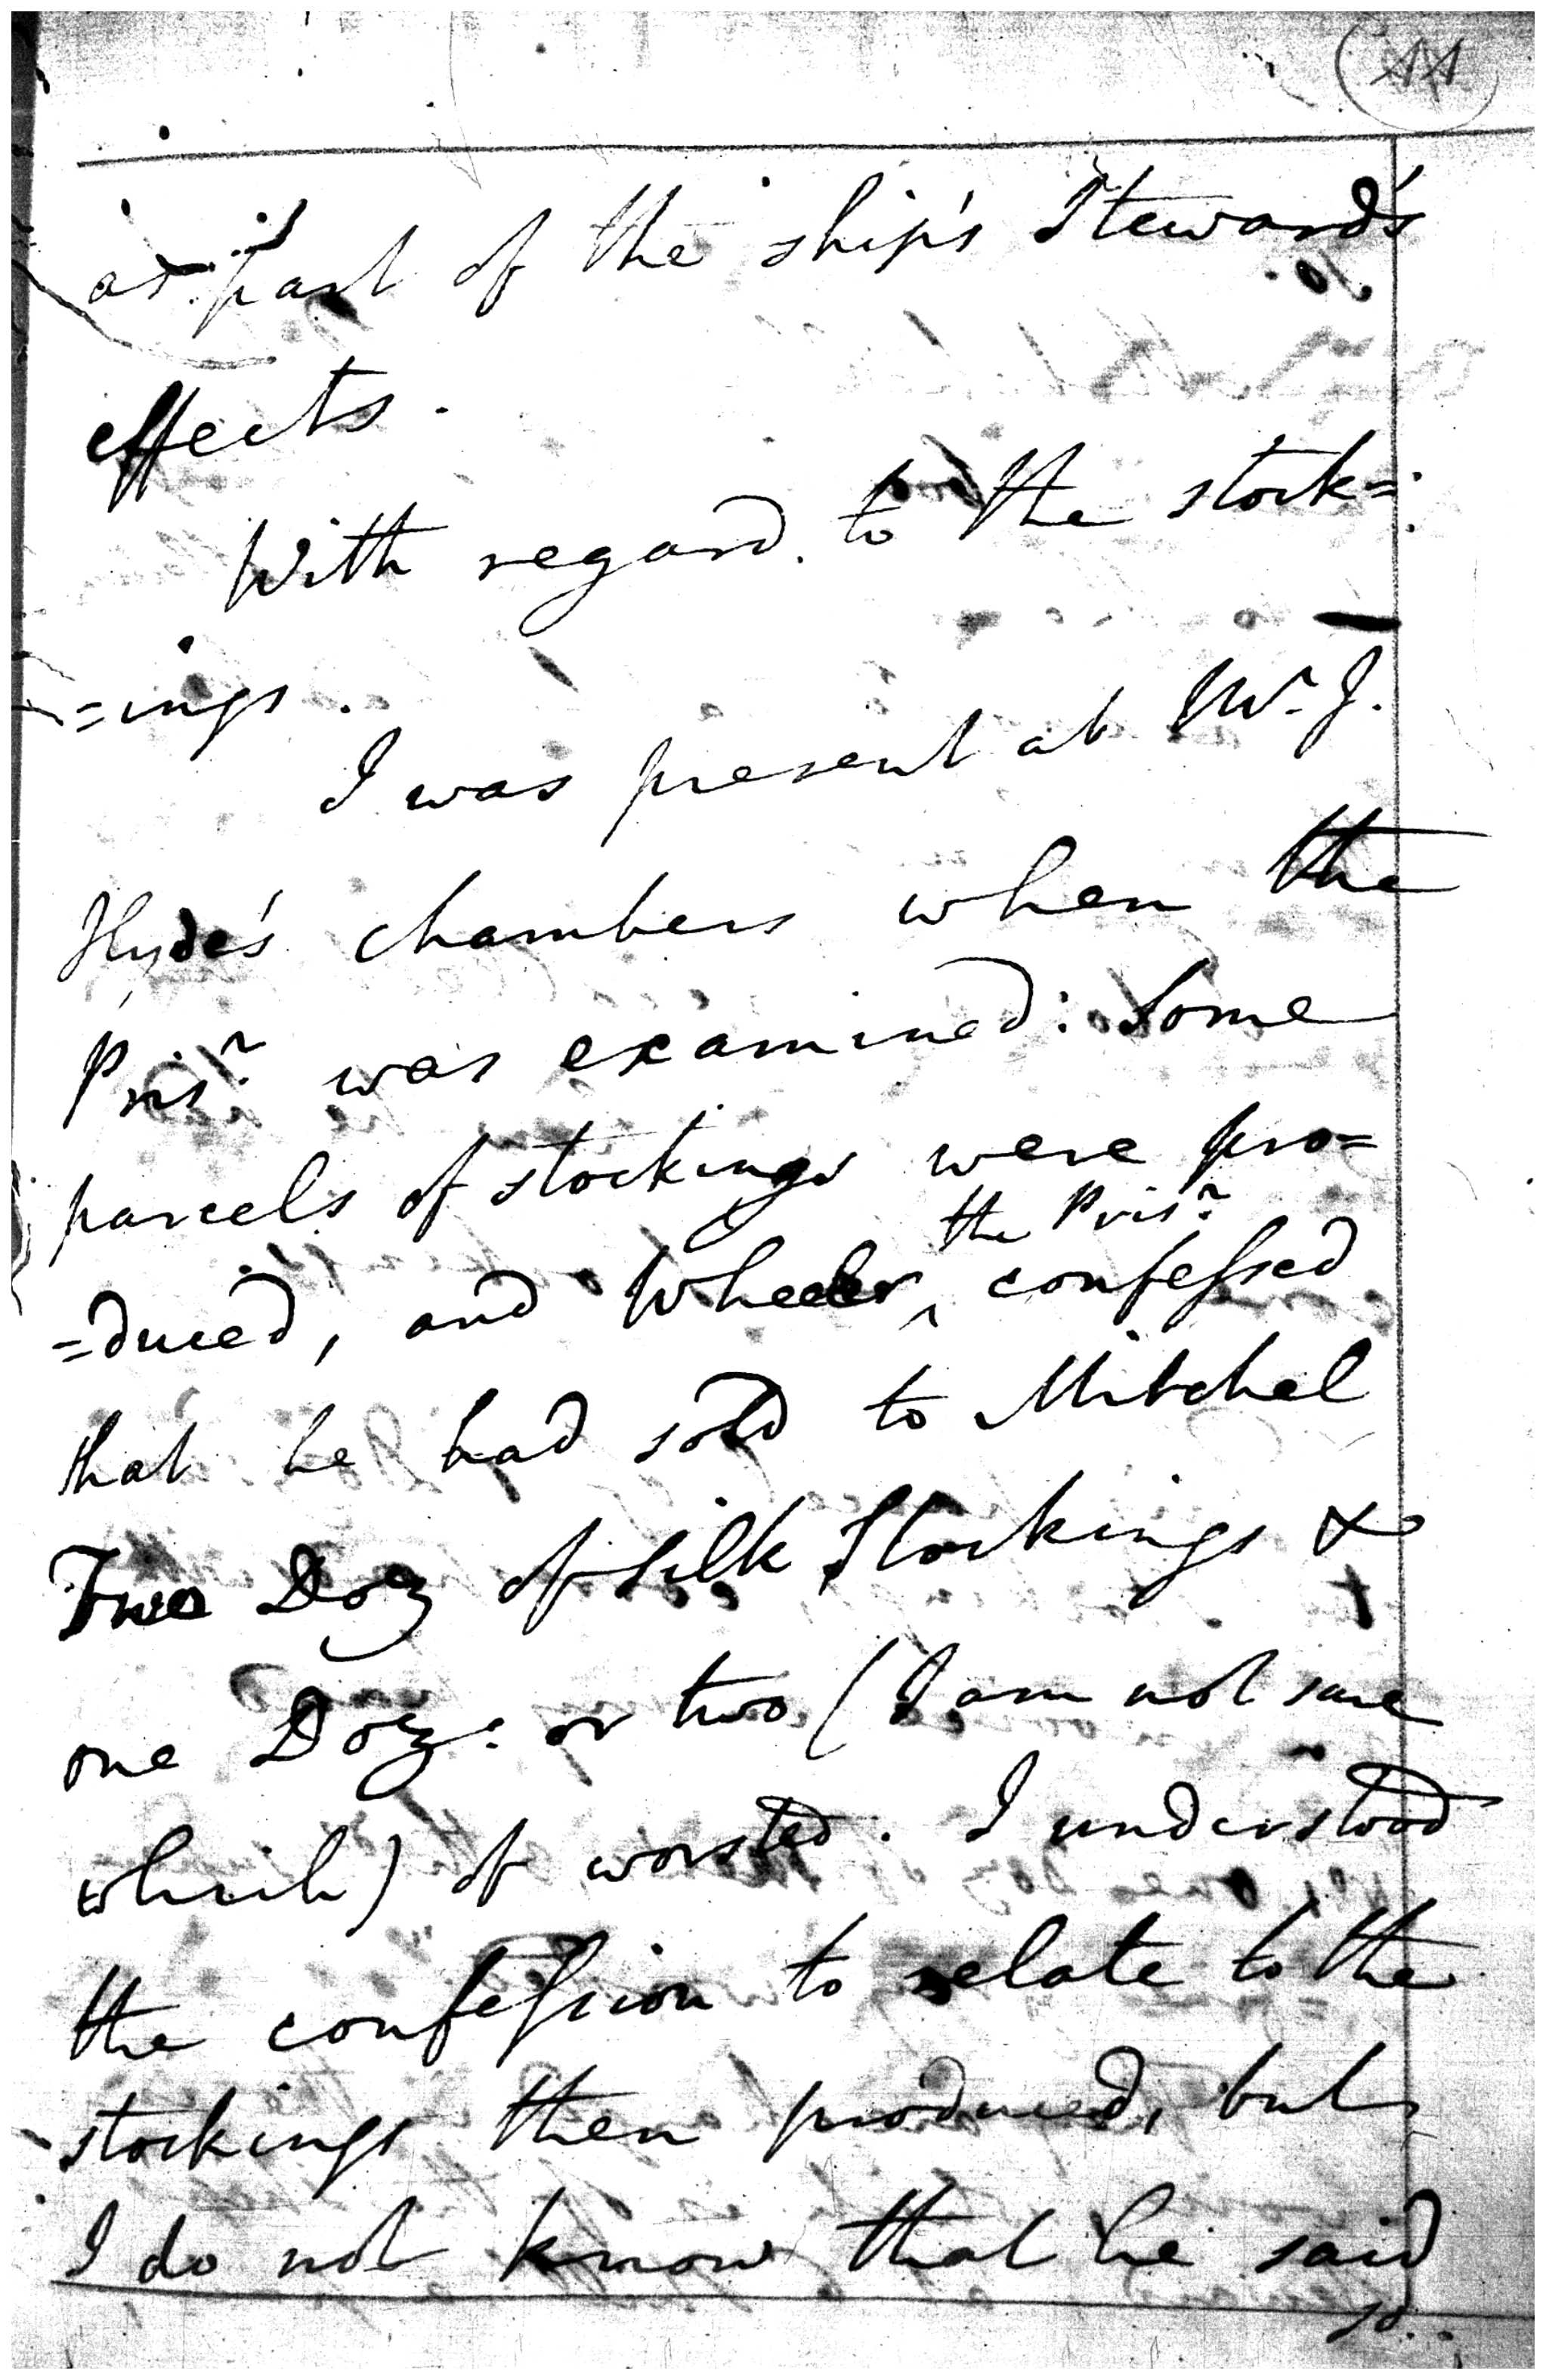 as part of the ship's Steward's
effects.
With regard to the stock=
=ings.
I was present at Mr. J.
Hyde's chambers when the
Prisr. was examined: Some
parcels of stockings were pro=
the Prisr.
=duced, and Wheeler ^ confessed
that he had sold to Mitchel
Two Doz of silk Stockings &
one Doz: or two (I am not sure
which) of worsted. I understood
the confession to relate to the
stockings then produced, but
I do not know that he said
so.